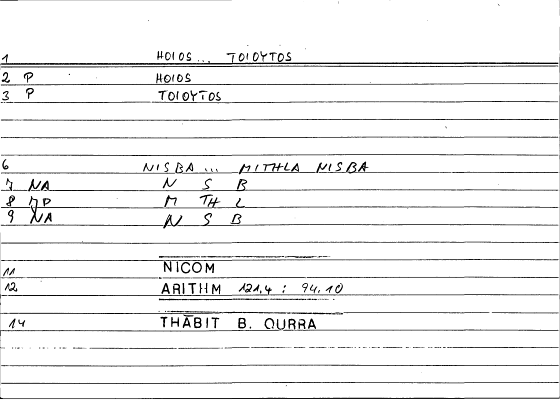 1 HOIOS... TOIOYTOS
2 P HOIOS
3 P TOIOYTOS
6 NISBA ... MITHLA NISBA
7 NA N S B
8 MP M TH L
9 NA N S B
11 NICOM
12 ARITHM 121,4 : 94.10
14 THĀBIT B. QURRA